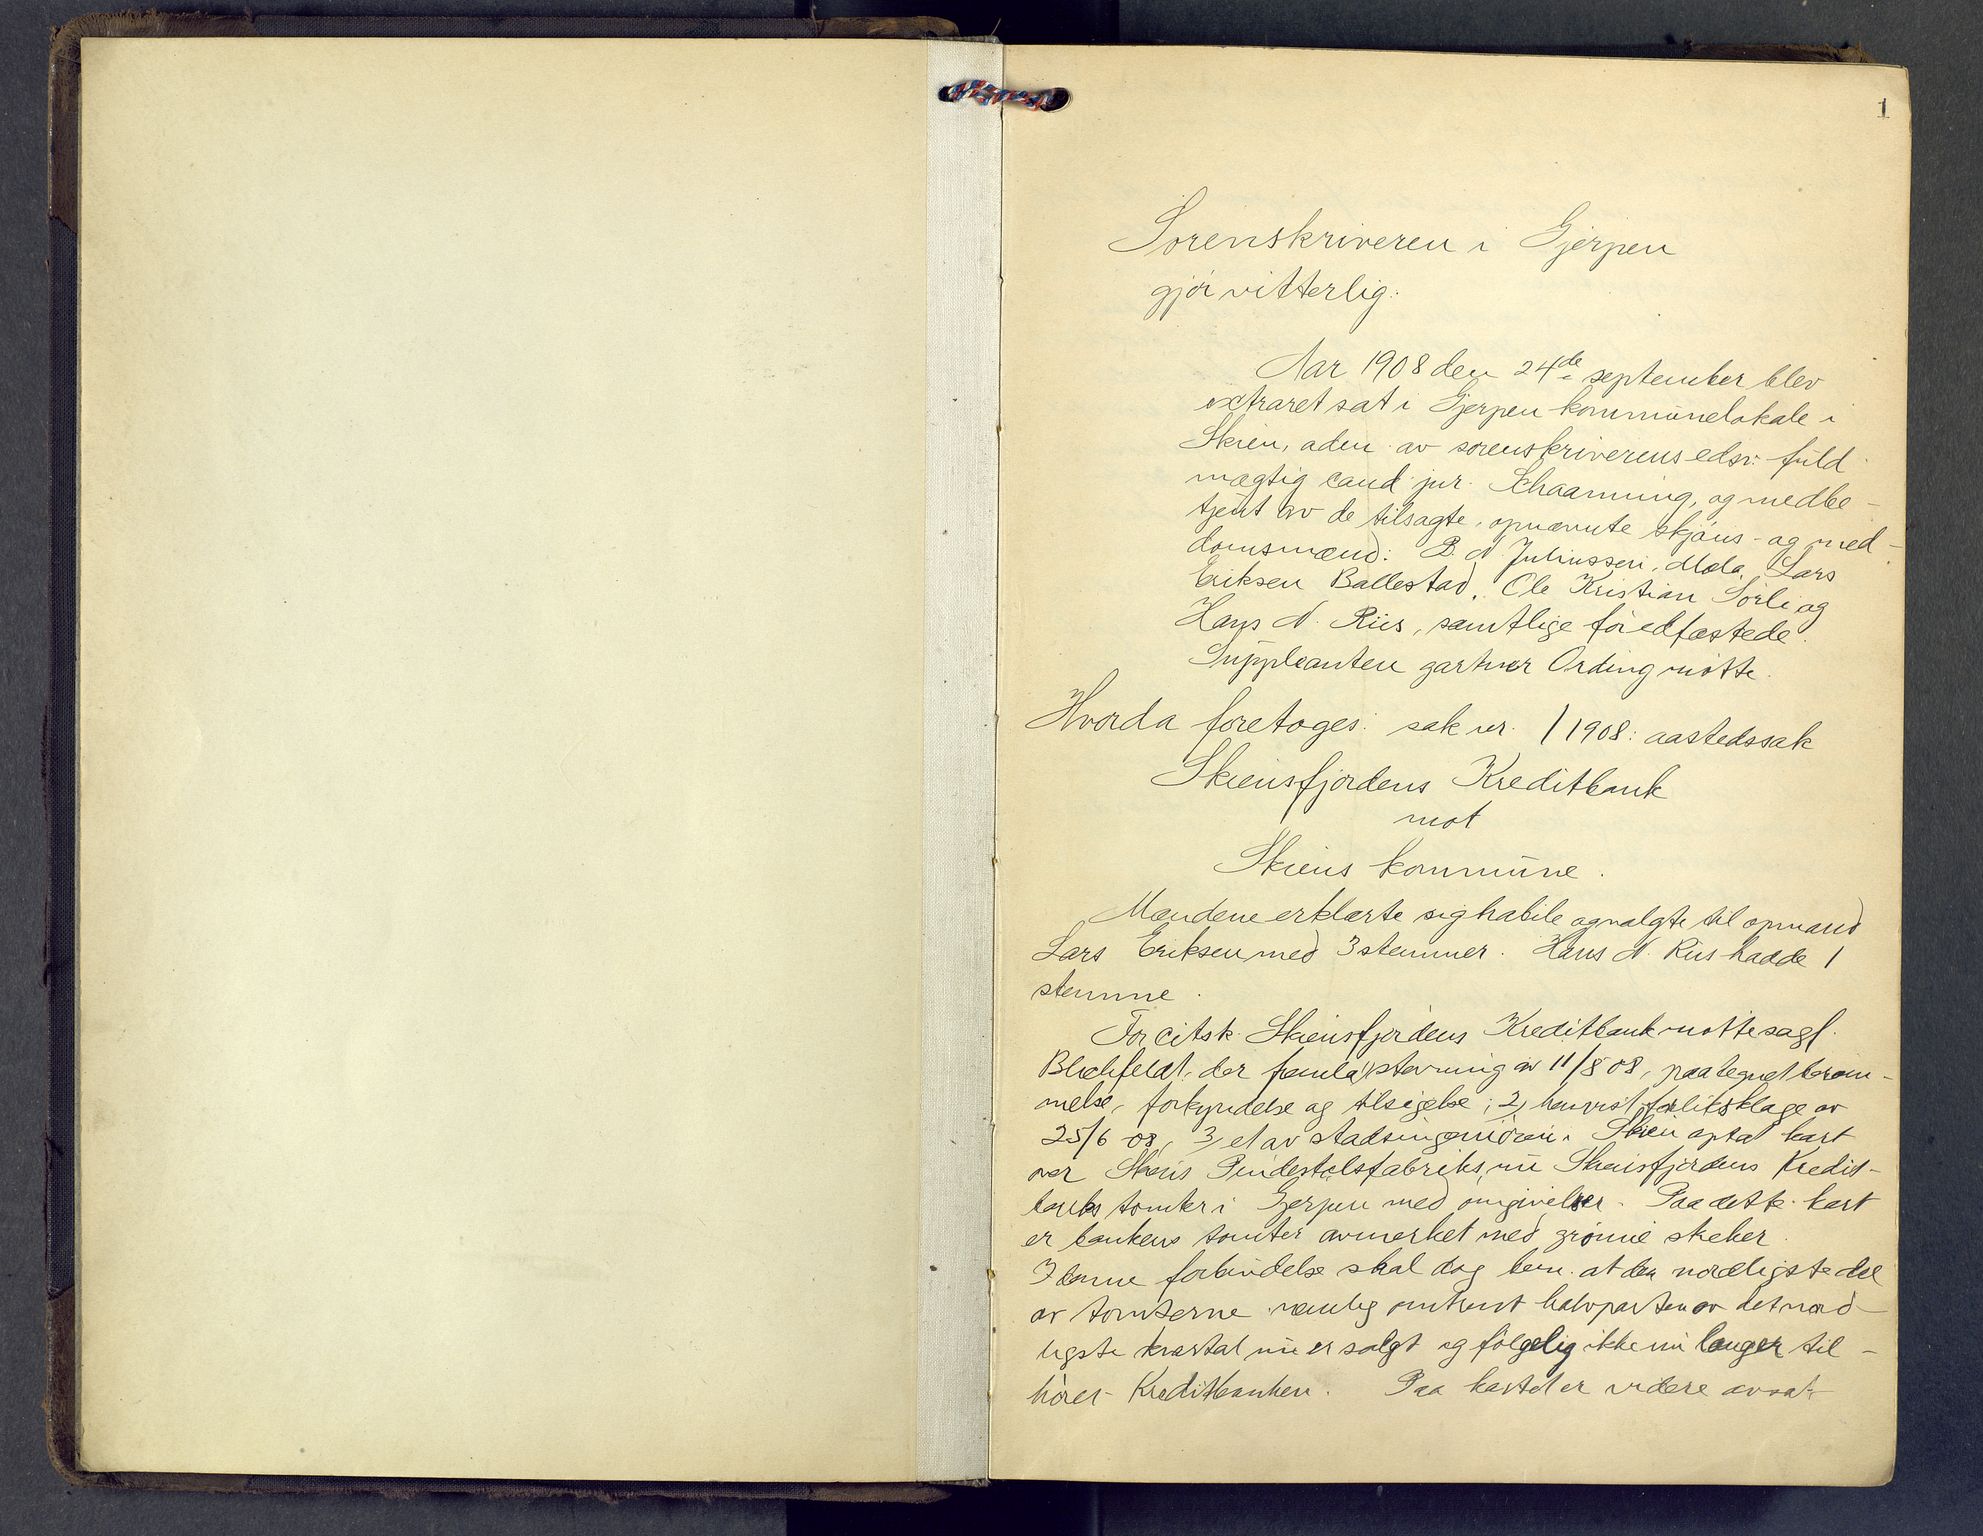 1
Sorenskriveren i Gjerpen
gjör vitterlig:
Aar 1908 den 24de september blev
extraret sat i Gjerpen kommunelokale i
Skien, aden av sorenskriverens edsv. fuld-
mægtig cand jur. Schaanning, og medbe-
tjent av de tilsagte, opnævnte skjöns- og med-
domsmænd: P. N. Juliussen, Mæla, Lars
Eriksen Ballestad, Ole Kristian Sörli og
Hans N. Riis, samtlige för edfæstede.
Suppleanten gartner Ording mötte.
Hvorda foretoges: sak nr. 1 1908: aastedssak
Skiensfjordens Kreditbank
mot
Skiens kommune.
Mændene erklærte sig habile og valgte til opmand
Lars Eriksen med 3 stemmer. Hans N. Riis hadde 1
stemme.
For citsk. Skiensfjordens Kreditbank mötte sagf.
Blichfeldt, der fremla 1, stevning av 11/8 08, paategnet beram-
melse, forkyndelse og tilsigelse; 2, henvist forliksklage av
25/6 08, 3, et av stadsingeniören i Skien optat kart
over Skiens Pindestolsfabriks, nu Skiensfjordens Kredit-
banks tomter i Gjerpen med omgivelser. Paa dette kart
er bankens tomter avmerket med grönne streker.
I denne forbindelse skal dog bem. at den nordligste del
av tomterne nemlig omtrent halvparten av det nord-
ligste kvartal nu er solgt og fölgelig ikke nu længer til-
hörer Kreditbanken. Paa kartet er videre avsat